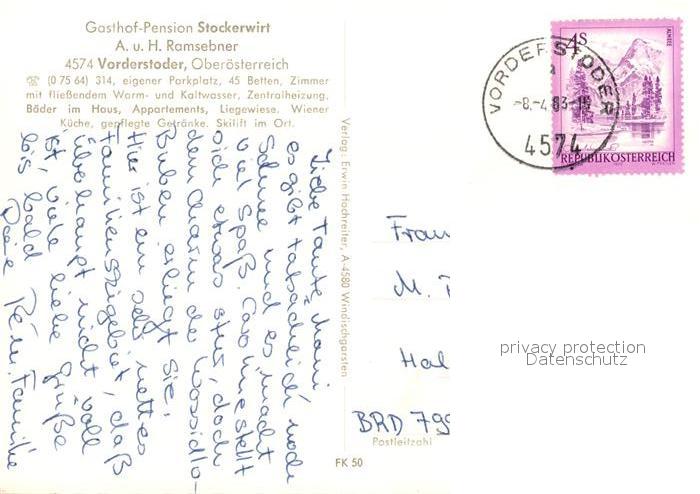 Gasthof-Pension Stockerwirt
A. u. H. Ramsebner
4574 Vorderstoder, Oberösterreich
☎ (0 75 64) 314, eigener Parkplatz, 45 Betten, Zimmer
mit fließendem Warm- und Kaltwasser, Zentralheizung,
Bäder im Haus, Appartements, Liegewiese. Wiener
Küche, gepflegte Getränke. Skilift im Ort.
Liebe Tante Mani
es gibt tatsächlich noch
Schnee und es macht
viel Spaß. Caroline stellt
sich etwas stur, doch
dem Charm der Wossidlo
Buben erliegt sie.
Hier ist ein sehr nettes
Familienskigebiet, daß
überhaupt nicht voll
ist, viele liebe Grüße
bis bald
Deine Familie
Verlag: Erwin Hochreiter, A-4580 Windischgarsten
FK 50
VORDERSTODER
-8.-4.83-
4574
4S
ALMSEE
REPUBLIK ÖSTERREICH
Frau
M.
Hal
BRD 799
Postleitzahl
privacy protection
Datenschutz